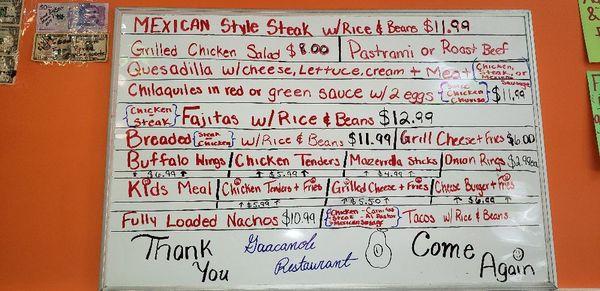 MEXICAN Style Steak w/Rice & Beans $11.99
Grilled Chicken Salad $8.00 | Pastrami or Roast Beef
Quesadilla w/cheese, Lettuce, cream + Meat { Chicken, Steak, or Mexican Sausage
Chilaquiles in red or green sauce w/2 eggs { Chicken } $11.99
{ Chicken Steak } Fajitas w/ Rice & Beans $12.99
Breaded { Steak Chicken } w/ Rice & Beans $11.99 / Grill Cheese + Fries $6.00
Buffalo Wings / Chicken Tenders / Mozerrella Sticks / Onion Rings $2.99
↑ $6.99 ↑ ↑ $5.99 ↑ ↑ $4.99 ↑
Kids Meal / Chicken Tenders + Fries / Grilled Cheese + Fries / Cheese Burger + Fries
↑ $5.99 ↑ ↑ $5.50 ↑ ↑ $6.99 ↑
Fully Loaded Nachos $10.99 / { Chicken - Carnitas Steak - Al Pastor } Tacos w/ Rice & Beans
Thank You
Guacamole Restaurant
Come Again